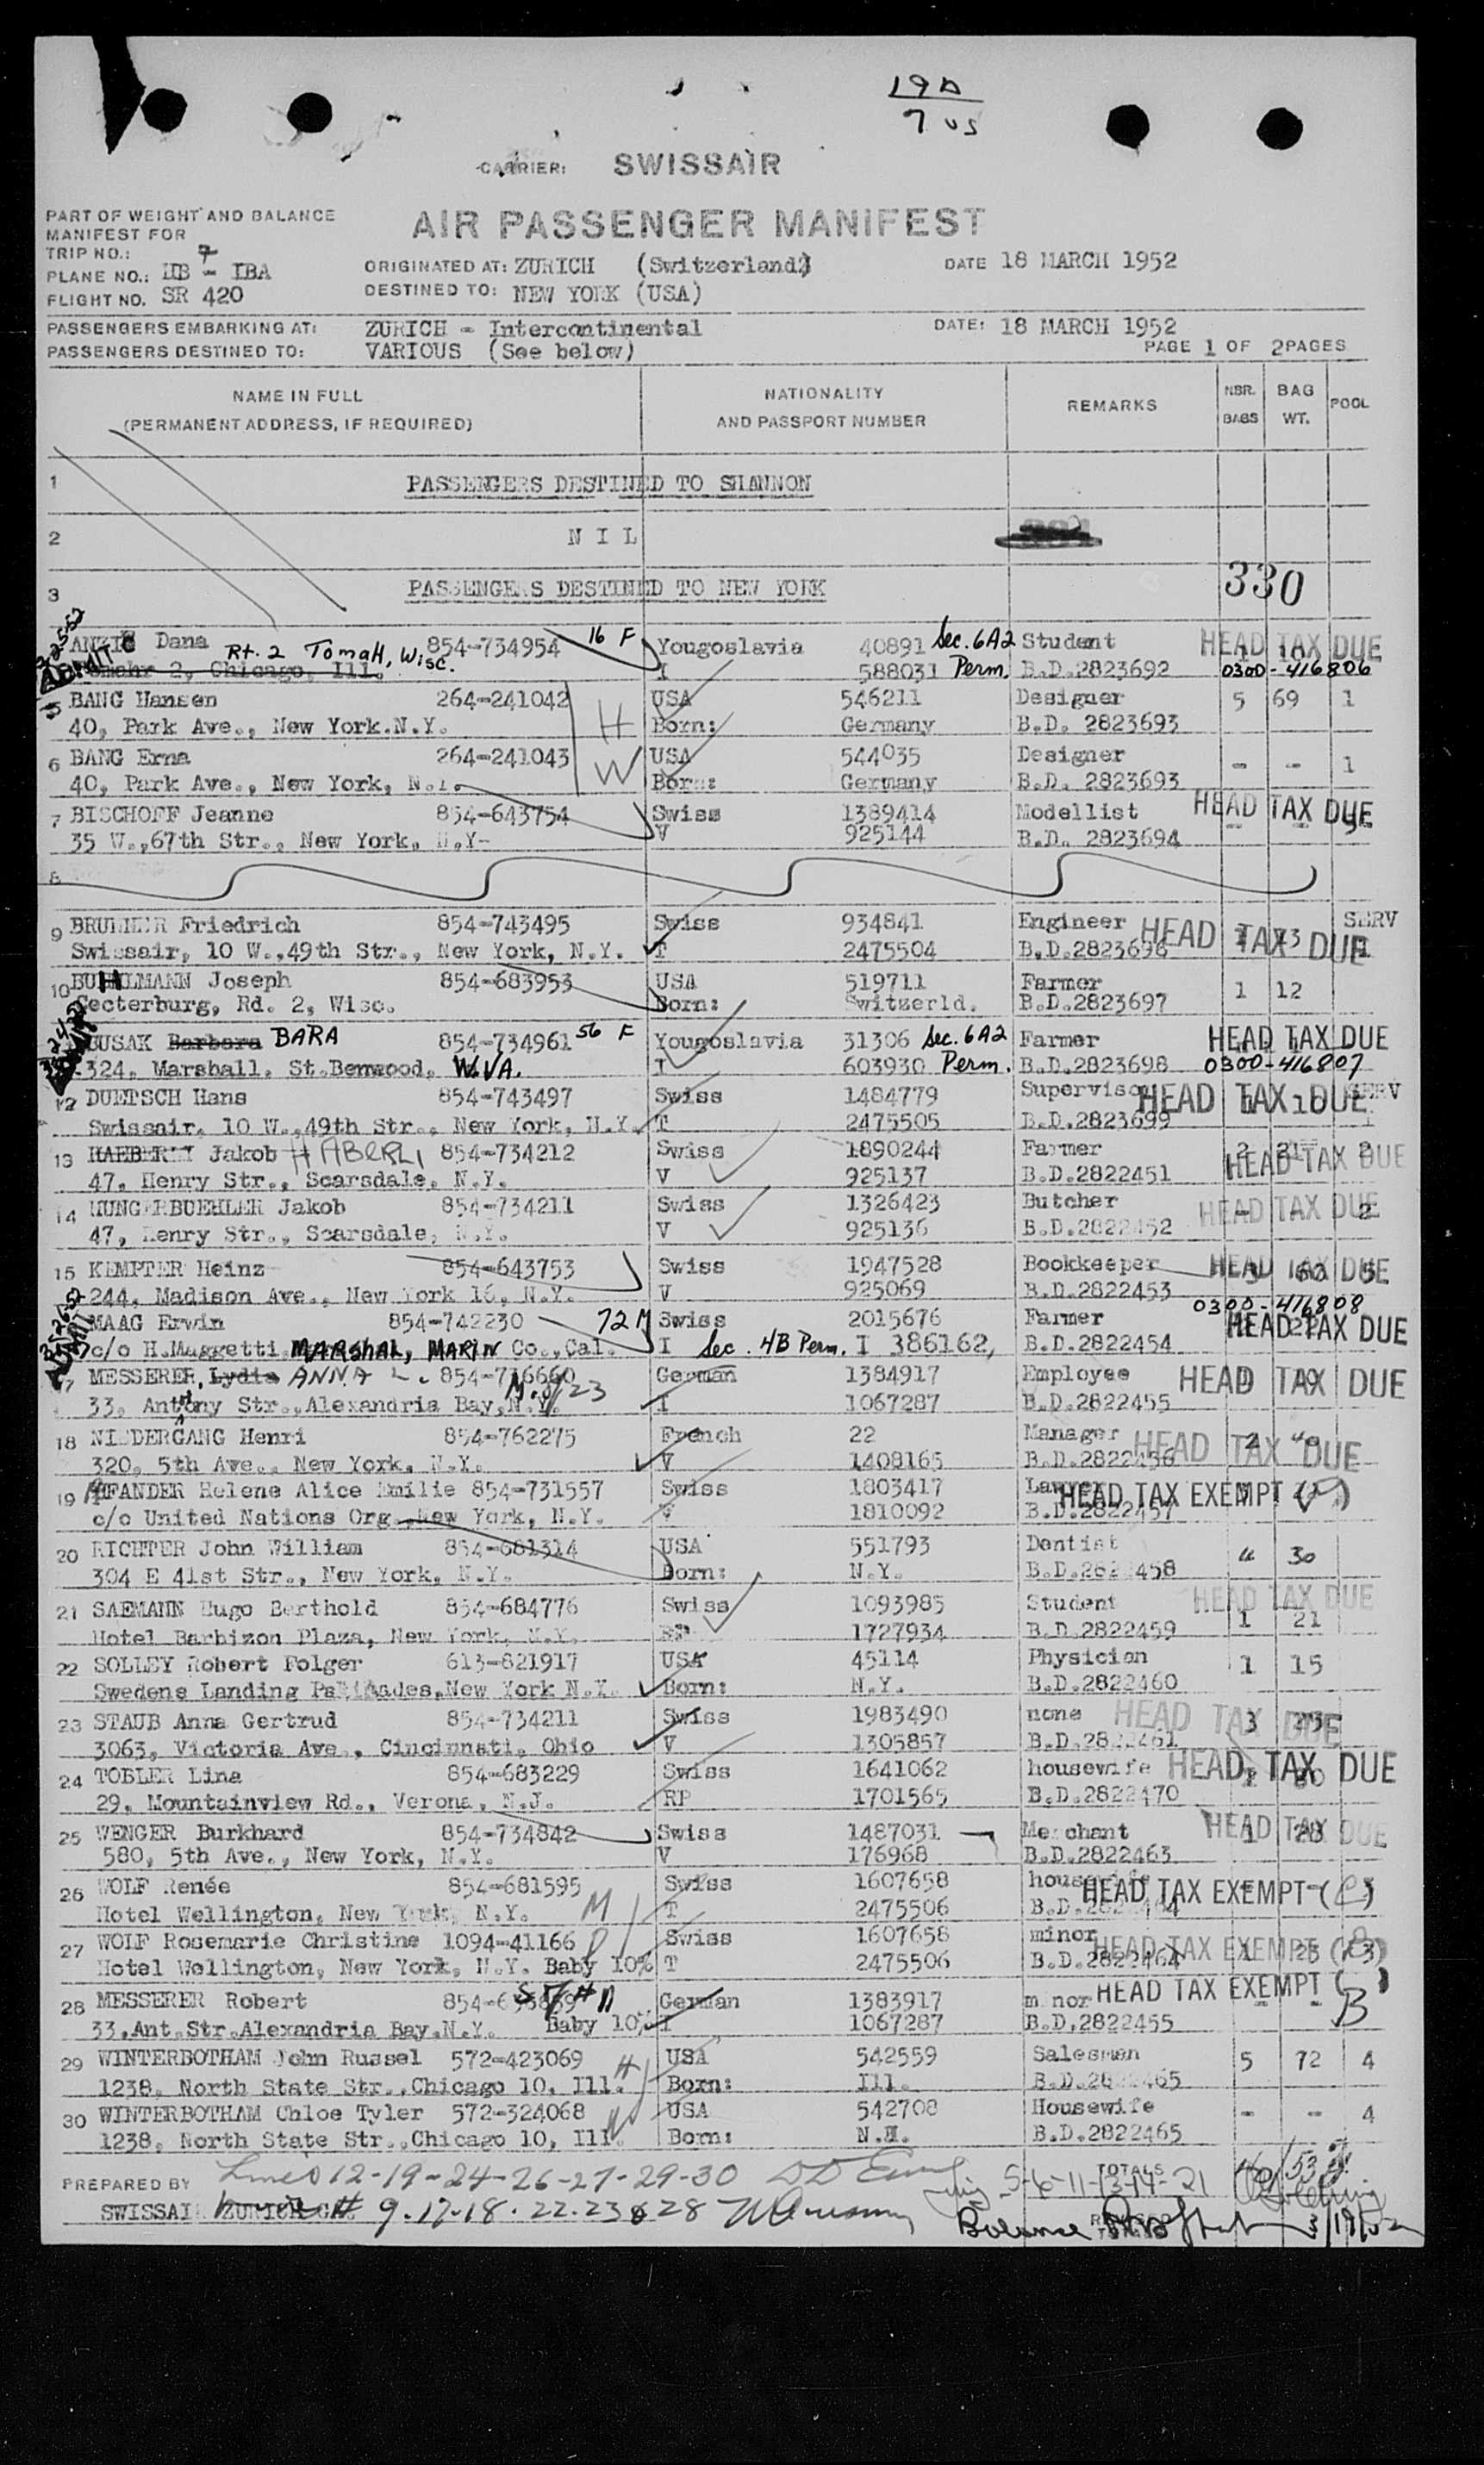 19A
7 US
CARRIER: SWISSAIR
AIR PASSENGER MANIFEST
PART OF WEIGHT AND BALANCE
MANIFEST FOR
TRIP NO.: 7
PLANE NO.: HB - IBA
FLIGHT NO. SR 420
ORIGINATED AT: ZURICH (Switzerland)
DESTINED TO: NEW YORK (USA)
DATE 18 MARCH 1952
PASSENGERS EMBARKING AT: ZURICH - Intercontinental DATE: 18 MARCH 1952
PASSENGERS DESTINED TO: VARIOUS (See below) PAGE 1 OF 2PAGES
NAME IN FULL NATIONALITY REMARKS NBR. BAG POOL
(PERMANENT ADDRESS, IF REQUIRED) AND PASSPORT NUMBER BAGS WT.
1 PASSENGERS DESTINED TO SHANNON
2 N I L
3 PASSENGERS DESTINED TO NEW YORK 330
Dana 854-734954 16 F Yougoslavia 40891 Sec. 6A2 Student HEAD TAX DUE
2, Chicago, Ill. Rt. 2 Tomah, Wisc. I 588031 Perm. B.D.2823692 0300-416806
BANG Hansen 264-241042 H USA 546211 Designer 5 69 1
40, Park Ave., New York.N.Y. Born: Germany B.D. 2823693
6 BANG Erna 264-241043 W USA 544035 Designer - - 1
40, Park Ave., New York, N.Y. Born: Germany B.D. 2823693
7 BISCHOFF Jeanne 854-643754 Swiss 1389414 Modellist HEAD TAX DUE
35 W.,67th Str., New York, N.Y- V 925144 B.D. 2823694
8
9 Friedrich 854-743495 Swiss 934841 Engineer HEAD TAX DUE SERV
Swissair, 10 W.,49th Str., New York, N.Y. T 2475504 B.D.2823696
10 BUHLMANN Joseph 854-683953 USA 519711 Farmer 1 12
Cecterburg, Rd. 2, Wisc. Born: Switzerld. B.D.2823697
BUSAK Barbara BARA 854-734961 56 F Yougoslavia 31306 Sec. 6A2 Farmer HEAD TAX DUE
324, Marshall, St.Benwood, W.VA. I 603930 Perm. B.D.2823698 0300-416807
12 DUETSCH Hans 854-743497 Swiss 1484779 Supervisor HEAD TAX DUE SERV
Swissair, 10 W.,49th Str., New York, N.Y. T 2475505 B.D.2823699
13 Jakob HABERLI 854-734212 Swiss 1890244 Farmer 2 HEAD TAX DUE
47, Henry Str., Scarsdale, N.Y. V 925137 B.D.2822451
14 HUNGERBUEHLER Jakob 854-734211 Swiss 1326423 Butcher HEAD TAX DUE 2
47, Henry Str., Scarsdale, N.Y. V 925136 B.D.2822452
15 KEMPTER Heinz 854-643753 Swiss 1947528 Bookkeeper HEAD TAX DUE
244, Madison Ave., New York 16, N.Y. V 925069 B.D.2822453
MAAG Erwin 854-742230 72 M Swiss 2015676 Farmer 0300-416808 HEAD TAX DUE
c/o H.Maggetti MARSHAL, MARIN Co., Cal. I Sec. 4B Perm. I 386162, B.D.2822454
MESSERER, Lydia ANNA L. 854-716660 German 1384917 Employee HEAD TAX DUE
33, Antony Str.,Alexandria Bay,N.Y. I 1067287 B.D.2822455
18 NIEDERGANG Henri 854-762275 French 22 Manager 2 40 HEAD TAX DUE
320, 5th Ave., New York, N.Y. V 1408165 B.D.2822456
19 PFANDER Helene Alice Emilie 854-731557 Swiss 1803417 Lawyer HEAD TAX EXEMPT
c/o United Nations Org.,New York, N.Y. V 1810092 B.D.2822457
20 RICHTER John William 854-681314 USA 551793 Dentist 30
304 E 41st Str., New York, N.Y. Born: N.Y. B.D.2822458
21 SAEMANN Hugo Berthold 854-684776 Swiss 1093985 Student HEAD TAX DUE
Hotel Barbizon Plaza, New York, N.Y. 1727934 B.D.2822459 1 21
22 SOLLEY Robert Folger 613-821917 USA 45114 Physician 1 15
Swedens Landing Palisades,New York N.Y. Born: N.Y. B.D.2822460
23 STAUB Anna Gertrud 854-734211 Swiss 1983490 none HEAD TAX DUE 3
3063, Victoria Ave., Cincinnati, Ohio V 1305857 B.D.2822461
24 TOBLER Lina 854-683229 Swiss 1641062 housewife HEAD TAX DUE
29, Mountainview Rd., Verona, N.J. RP 1701565 B.D.2822470
25 WENGER Burkhard 854-734842 Swiss 1487031 Merchant HEAD TAX DUE 1 28
580, 5th Ave., New York, N.Y. V 176968 B.D.2822463
26 WOLF Renée 854-681595 Swiss 1607658 housewife HEAD TAX EXEMPT
Hotel Wellington, New York, N.Y. M T 2475506 B.D.2822464
27 WOLF Rosemarie Christine 1094-41166 Swiss 1607658 minor HEAD TAX EXEMPT
Hotel Wellington, New York, N.Y. Baby 10% T 2475506 B.D.2822464
28 MESSERER Robert German 1383917 minor HEAD TAX EXEMPT ( )
33.Ant.Str.Alexandria Bay.N.Y. Baby 10% I 1067287 B.D.2822455 - - B
29 WINTERBOTHAM John Russel 572-423069 H USA 542559 Salesman 5 72 4
1238, North State Str.,Chicago 10, Ill. Born: Ill. B.D.2822465
30 WINTERBOTHAM Chloe Tyler 572-324068 W USA 542708 Housewife - - 4
1238, North State Str.,Chicago 10, Ill. Born: B.D.2822465
PREPARED BY Lines 12-19-24-26-27-29-30 5-6-11-13-14-21 TOTALS
SWISSAIR ZURICH 9.17-18.22.23 & 28 Balance 3/19/52